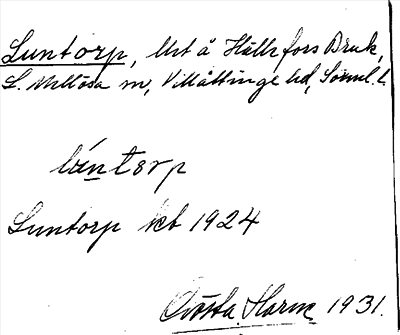 Luntorp, Ut å Hällefors Bruk,
L. Mellösa sn, Villåttinge hd, Sörml. l.
lúntɘrp
Luntorp kb 1924
Gösta Harm 1931.